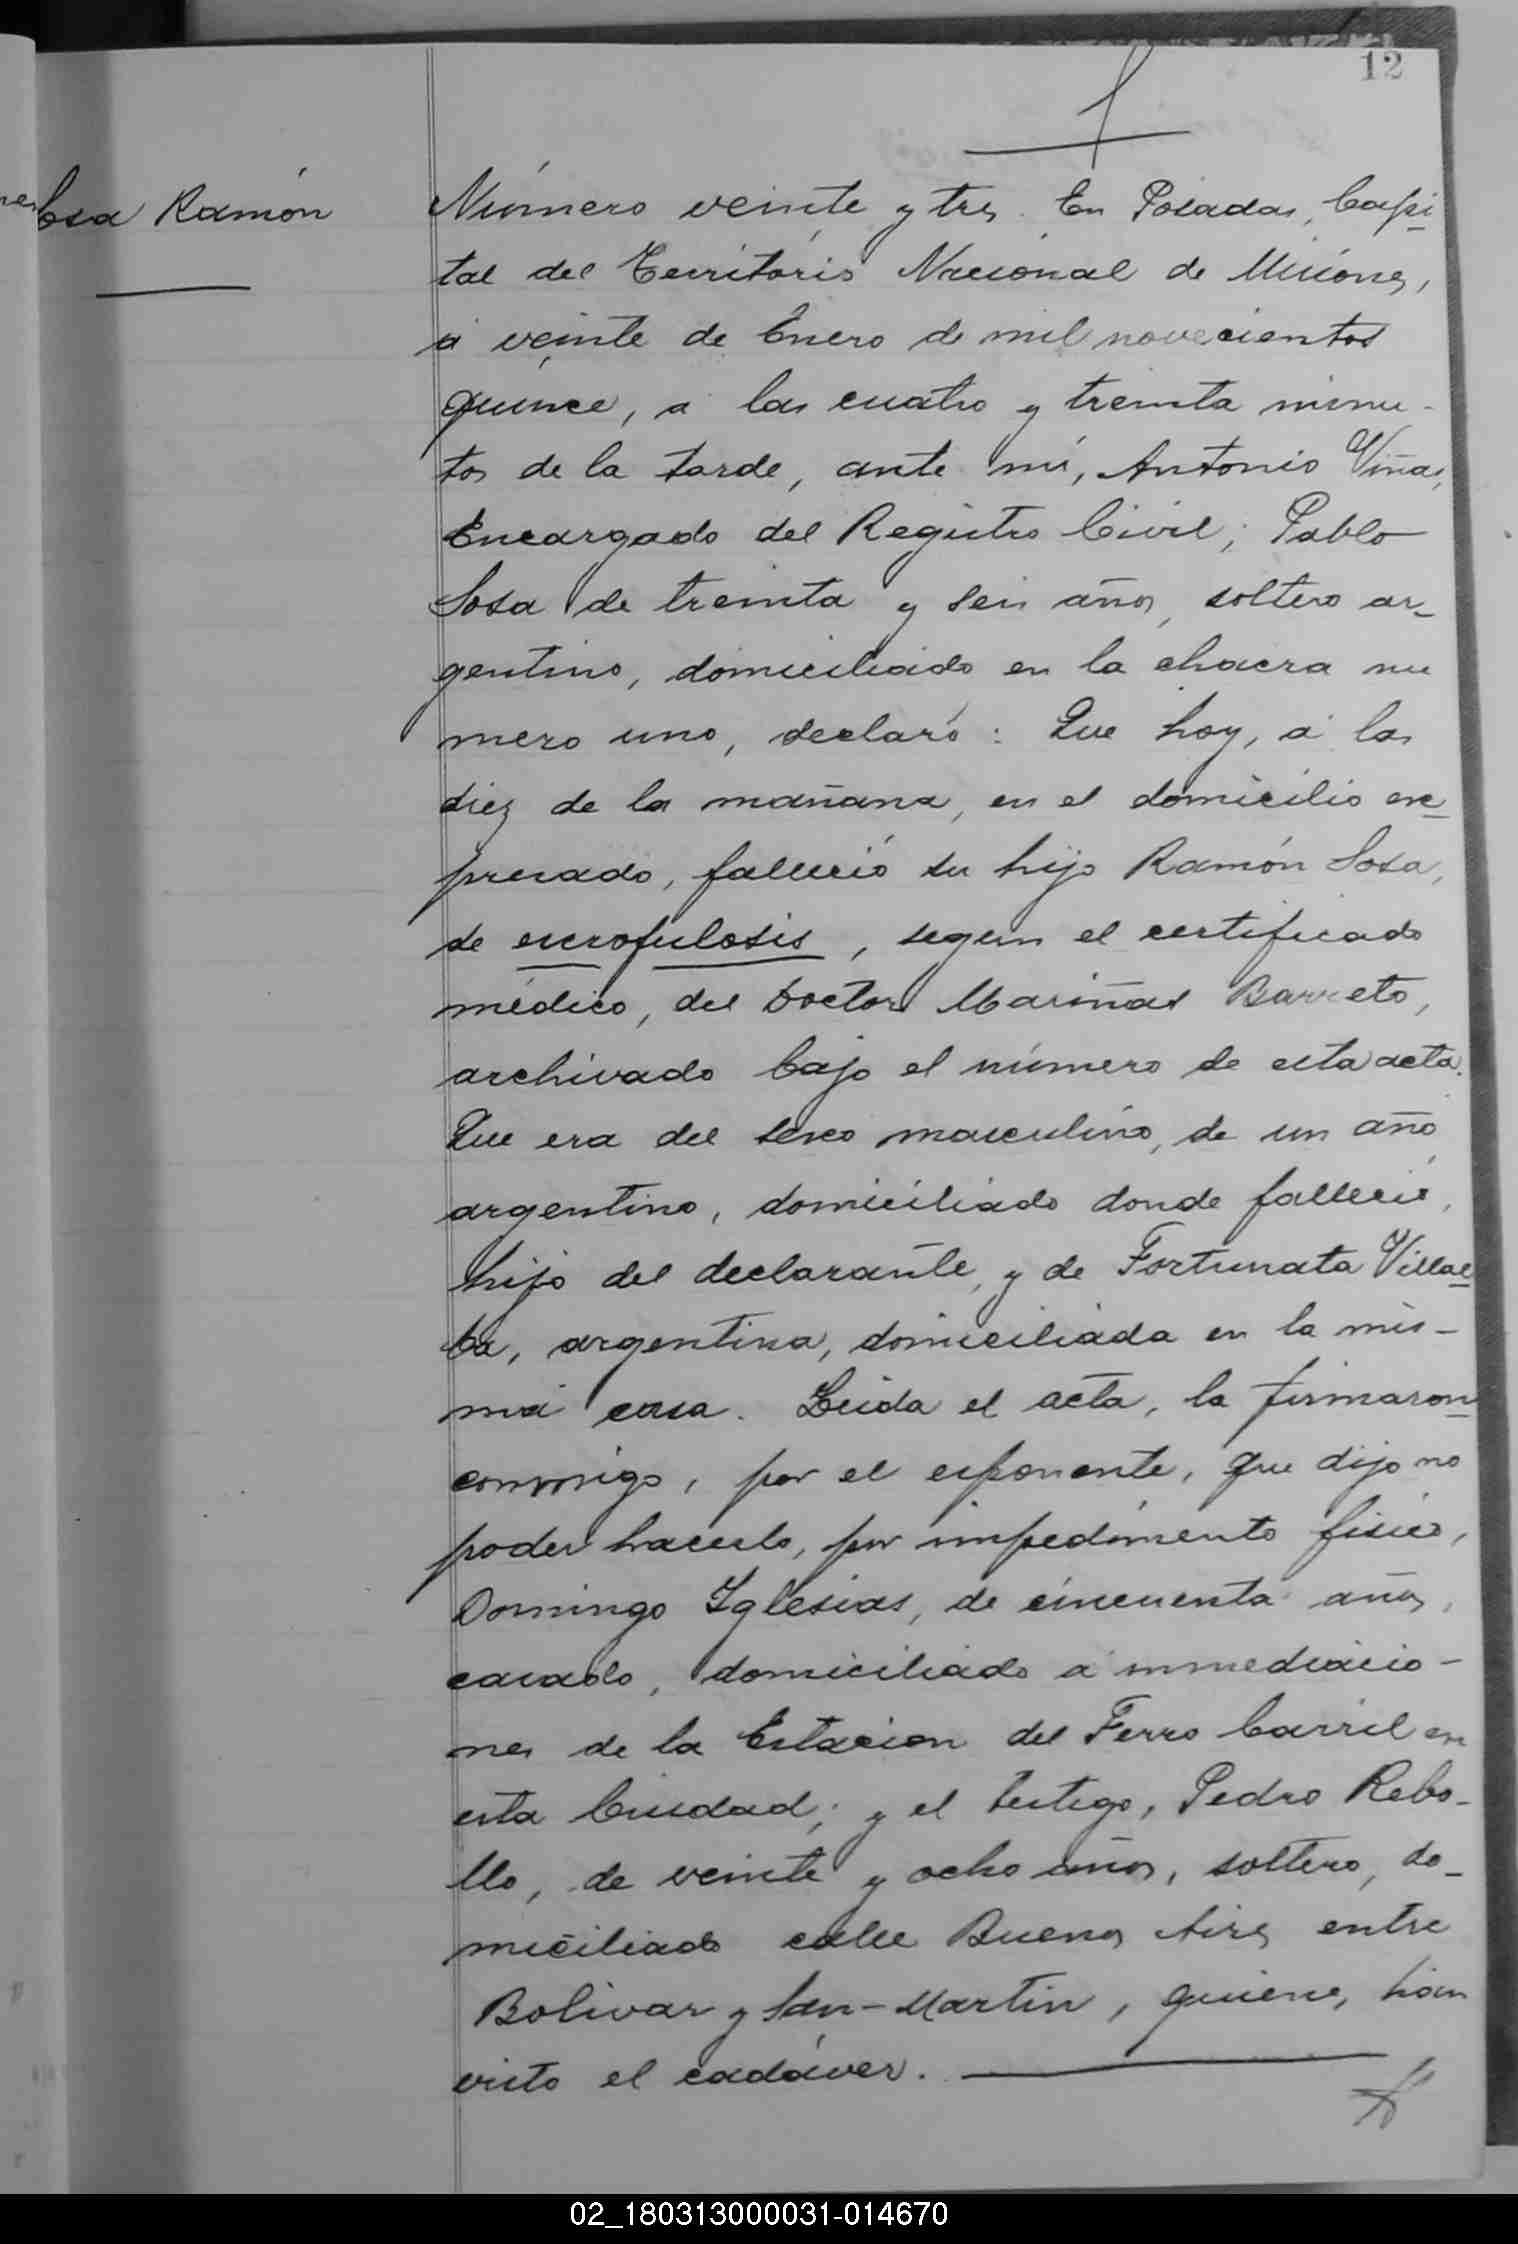 12
Sosa Ramón
Número veinte y tres. En Posadas, Capi
tal del Territorio Nacional de Misiones,
á veinte de Enero de mil novecientos
quince, á las cuatro y treinta minu-
tos de la tarde, ante mí, Antonio Viñas,
Encargado del Registro Civil; Pablo
Sosa de treinta y seis años, soltero ar-
gentino, domiciliado en la chacra nu
mero uno, declaró: Que hoy, á las
diez de la mañana, en el domicilio ex-
presado, falleció su hijo Ramón Sosa,
de escrofulosis, segun el certificado
médico, del Doctor Mariñas Barreto,
archivado bajo el número de esta acta.
Que era del sexo masculino, de un año
argentino, domiciliado donde falleció,
hijo del declarante, y de Fortunata Villal-
ba, argentina, domiciliada en la mis-
ma casa. Leida el acta, la firmaron
conmigo, por el esponente, que dijo no
poder hacerlo, por impedimento fisico,
Domingo Iglesias, de cincuenta años,
casado, domiciliado á inmediacio-
nes de la Estacion del Ferro Carril en
esta Ciudad; y el testigo, Pedro Rebo-
llo, de veinte y ocho años, soltero, do-
miciliado calle Buenos Aires entre
Bolivar y San-Martin, quienes han
visto el cadáver.
02_180313000031-014670